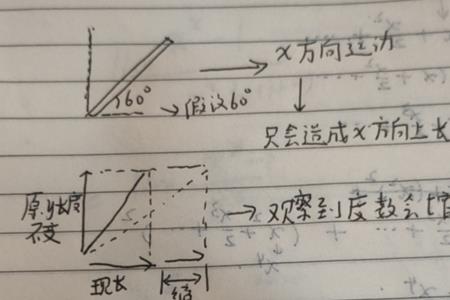 x方向运动
60°
假设60°
只会造成x方向上长
原y长度
不变
观察到度数会
现长
缩